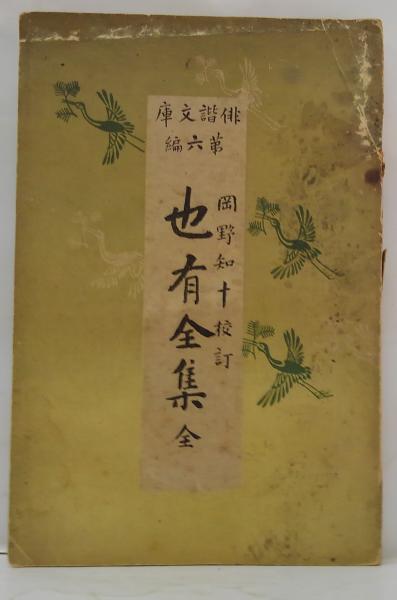 俳諧文庫
第六編
岡野知十校訂
也有全集 全